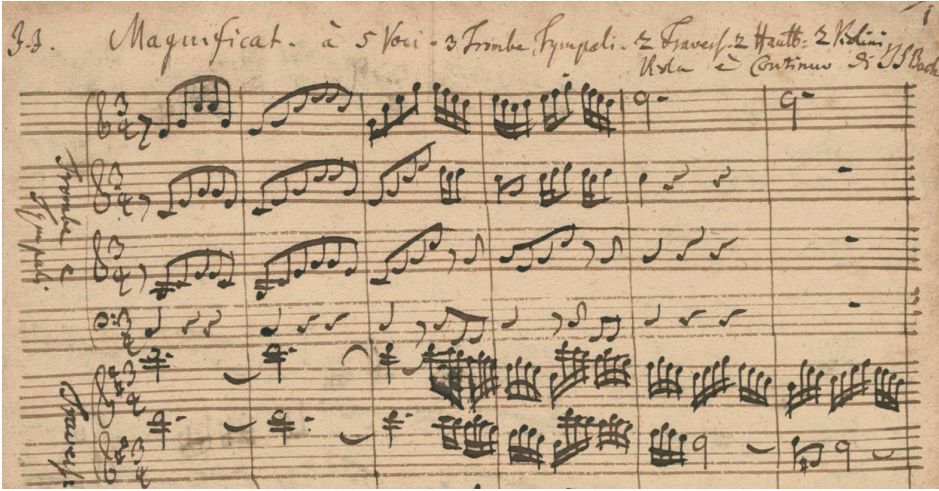 J.J. Magnificat. à 5 Voci. 3 Trombe, Tympali. 2 Travers. 2 Hautb. 2 Violini
Viola e Continuo di J S Bach
1
3
4
3
4
Trombe e
Tympali.
3
4
3
4
Travers:
3
4
3
4